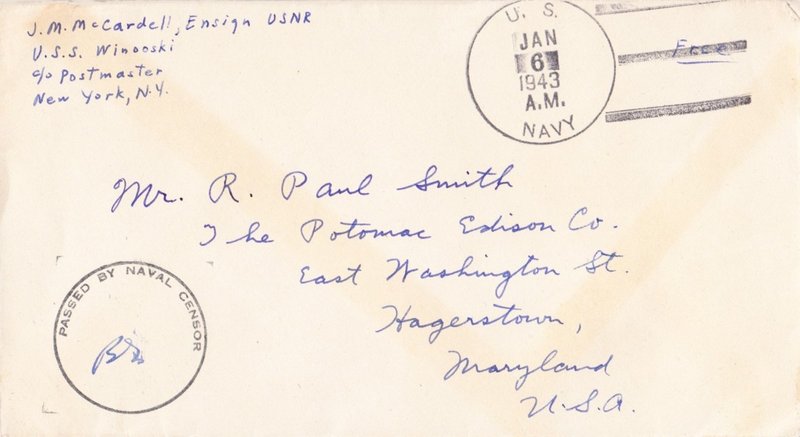 J. M. McCardell, Ensign USNR
U.S.S. Winooski
c/o Postmaster
New York, N.Y.
U. S.
JAN
6
1943
A.M.
NAVY
Free
Mr. R. Paul Smith
The Potomac Edison Co.
East Washington St.
Hagerstown,
Maryland
U.S.A.
PASSED BY NAVAL CENSOR